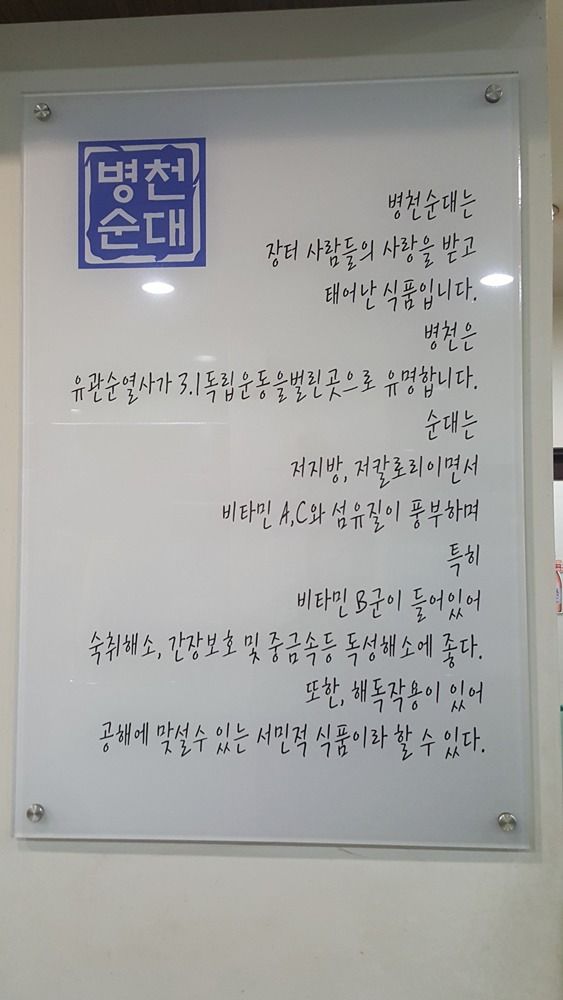 병천
순대
병천순대는
장터 사람들의 사랑을 받고
태어난 식품입니다.
병천은
유관순열사가 3.1독립운동을벌린곳으로 유명합니다.
순대는
저지방, 저칼로리이면서
비타민 A,C와 섬유질이 풍부하며
특히
비타민 B군이 들어있어
숙취해소, 간장보호 및 중금속등 독성해소에 좋다.
또한, 해독작용이 있어
공해에 맞설수 있는 서민적 식품이라 할 수 있다.